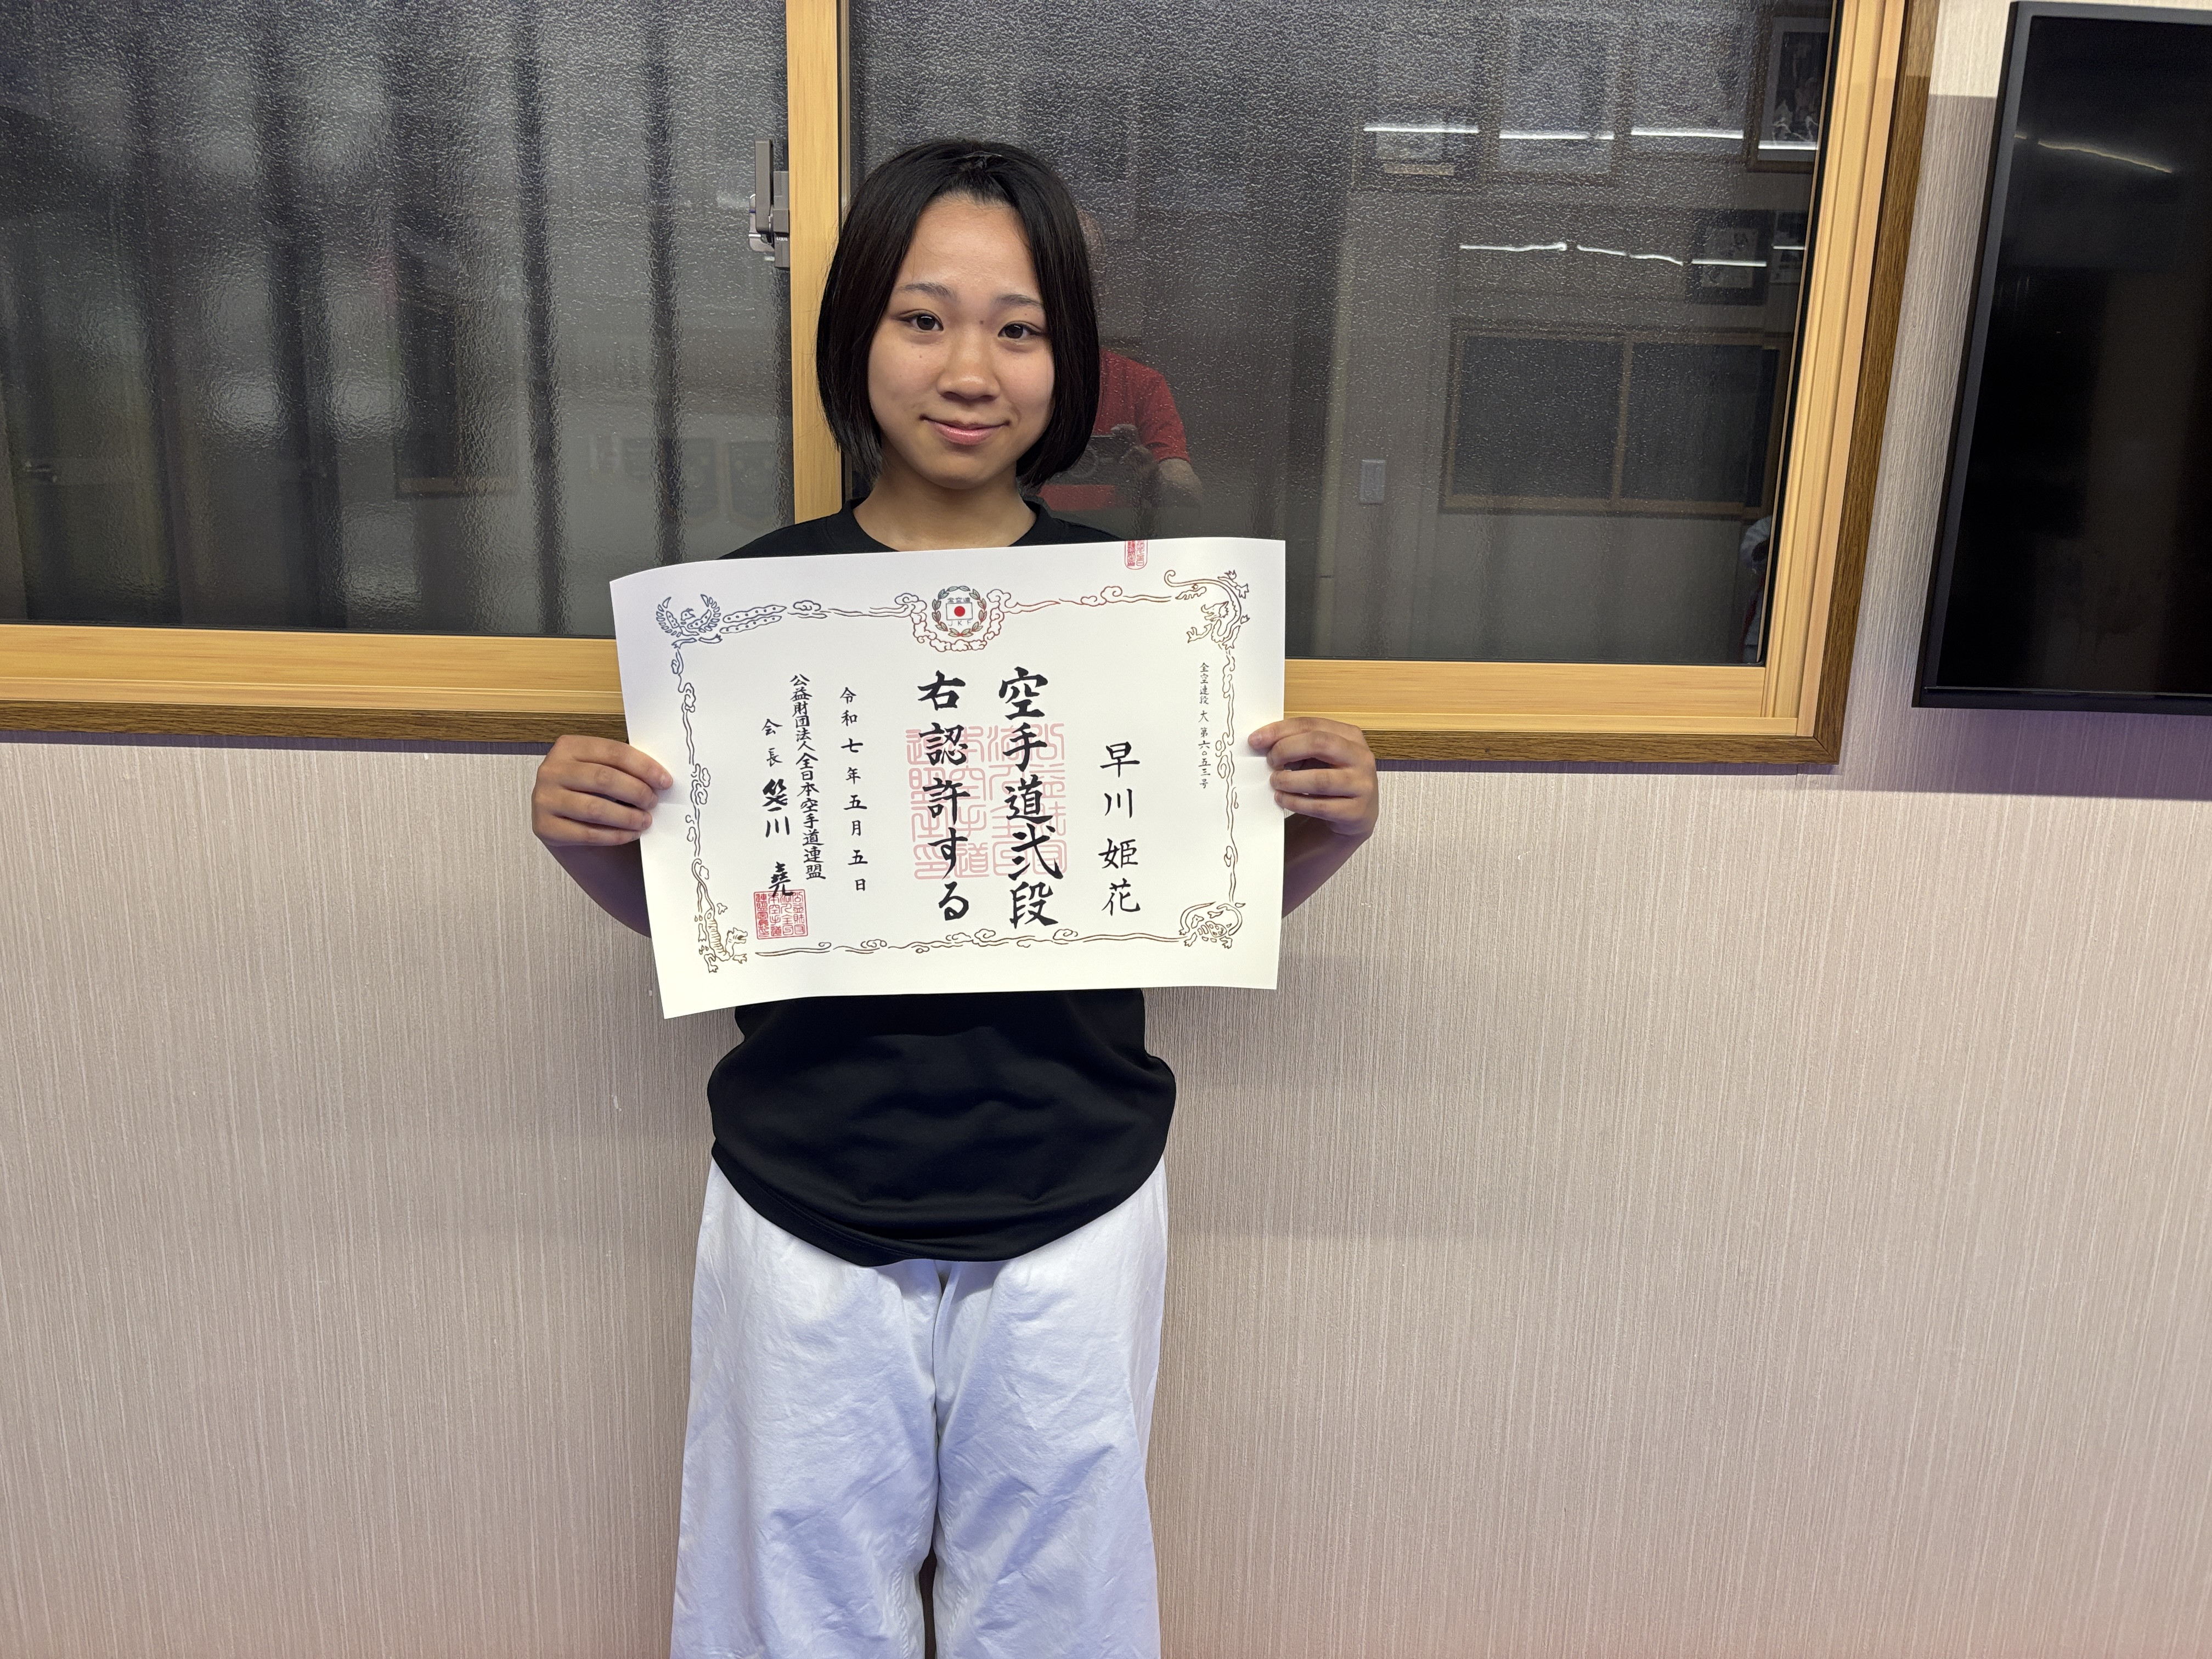 全空連
JKF
全空連段 大 第六〇五三号
早川姫花
空手道弐段
右認許する
令和七年五月五日
公益財団法人全日本空手道連盟
会長 笹川 堯